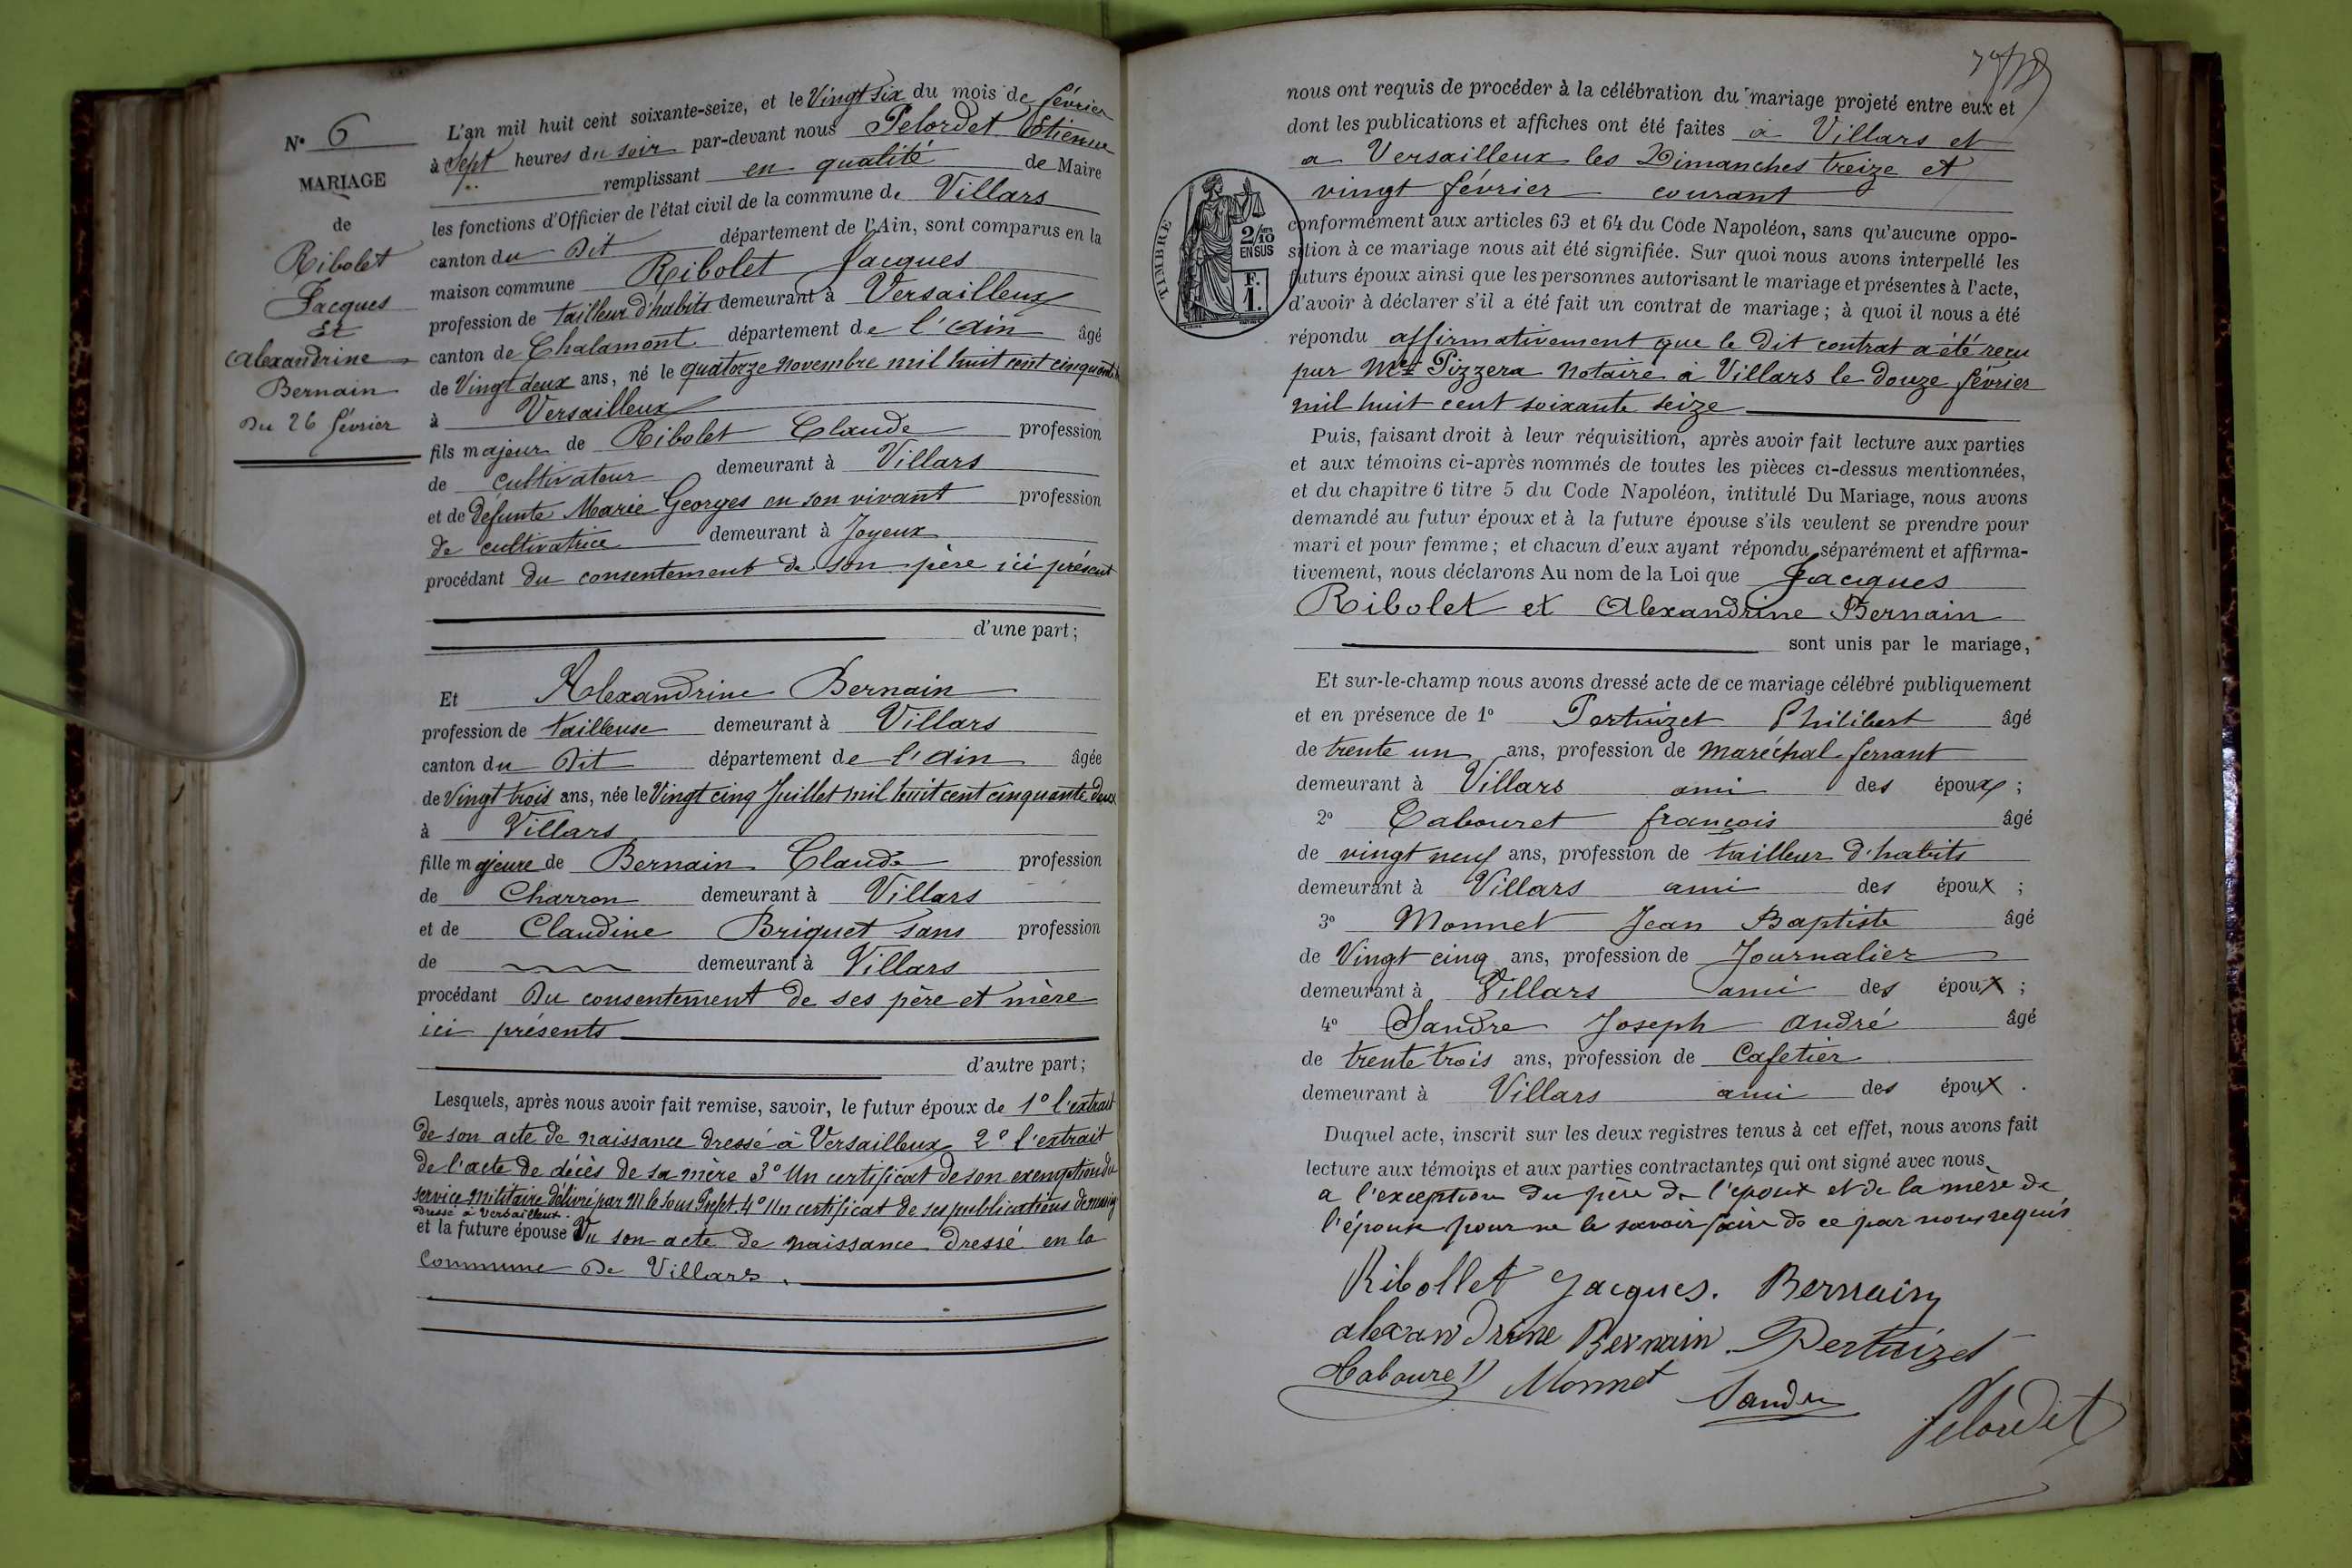 N° 6
MARIAGE
de
Ribolet
Jacques
Et
Alexandrine
Bernain
Du 26 février
L'an mil huit cent soixante-seize, et le Vingt six du mois de février
à Sept heures du soir par-devant nous Pelordet Etienne
remplissant en qualité de Maire
les fonctions d'Officier de l'état civil de la commune de Villars
canton du Dit département de l'Ain, sont comparus en la
maison commune Ribolet Jacques
profession de tailleur d'habits demeurant à Versailleux
canton de Chalamont département de l'Ain âgé
de Vingt deux ans, né le quatorze novembre mil huit cent cinquante
à Versailleux
fils majeur de Ribolet Claude profession
de cultivateur demeurant à Villars
et de défunte Marie Georges en son vivant profession
de cultivatrice demeurant à Joyeux
procédant du consentement de son père ici présent
d'une part;
Et Alexandrine Bernain
profession de tailleuse demeurant à Villars
canton du Dit département de l'Ain âgée
de Vingt trois ans, née le Vingt cinq Juillet mil huit cent cinquante deux
à Villars
fille majeure de Bernain Claude profession
de Charron demeurant à Villars
et de Claudine Briquet sans profession
de demeurant à Villars
procédant Du consentement de ses père et mère
ici présents
d'autre part;
Lesquels, après nous avoir fait remise, savoir, le futur époux de 1° l'extrait
de son acte de naissance dressé à Versailleux 2° l'extrait
de l'acte de décès de sa mère 3° Un certificat de son exemption du
service militaire délivré par M. le Sous Préft. 4° Un certificat de ses publications de mariag
dressé à Versailleux.
et la future épouse Vu son acte de naissance dressé en la
Commune De Villars.
nous ont requis de procéder à la célébration du mariage projeté entre eux et
dont les publications et affiches ont été faites à Villars et
a Versailleux les Dimanches treize et
vingt février courant
TIMBRE
2/10
EN SUS
F.
1.
conformément aux articles 63 et 64 du Code Napoléon, sans qu'aucune oppo-
sition à ce mariage nous ait été signifiée. Sur quoi nous avons interpellé les
futurs époux ainsi que les personnes autorisant le mariage et présentes à l'acte,
d'avoir à déclarer s'il a été fait un contrat de mariage; à quoi il nous a été
répondu affirmativement que le dit contrat a été reçu
par Me Pizzera Notaire à Villars le douze février
mil huit cent soixante seize
Puis, faisant droit à leur réquisition, après avoir fait lecture aux parties
et aux témoins ci-après nommés de toutes les pièces ci-dessus mentionnées,
et du chapitre 6 titre 5 du Code Napoléon, intitulé Du Mariage, nous avons
demandé au futur époux et à la future épouse s'ils veulent se prendre pour
mari et pour femme; et chacun d'eux ayant répondu séparément et affirma-
tivement, nous déclarons Au nom de la Loi que Jacques
Ribolet et Alexandrine Bernain
sont unis par le mariage,
Et sur-le-champ nous avons dressé acte de ce mariage célébré publiquement
et en présence de 1° Pertuizet Philibert âgé
de trente un ans, profession de maréchal ferrant
demeurant à Villars ami des époux;
2° Cabouret françois âgé
de vingt neuf ans, profession de tailleur d'habits
demeurant à Villars ami des époux;
3° Monnet Jean Baptiste âgé
de Vingt cinq ans, profession de Journalier
demeurant à Villars ami des époux;
4° Sandre Joseph André âgé
de trente trois ans, profession de Cafetier
demeurant à Villars ami des époux.
Duquel acte, inscrit sur les deux registres tenus à cet effet, nous avons fait
lecture aux témoins et aux parties contractantes qui ont signé avec nous
a l'exception du père de l'époux et de la mère de
l'épouse pour ne le savoir faire de ce par nous requis
Ribollet Jacques. Bernain
alexandrine Bernain Pertuizet
Cabouret Monnet Sandre
Pelordet